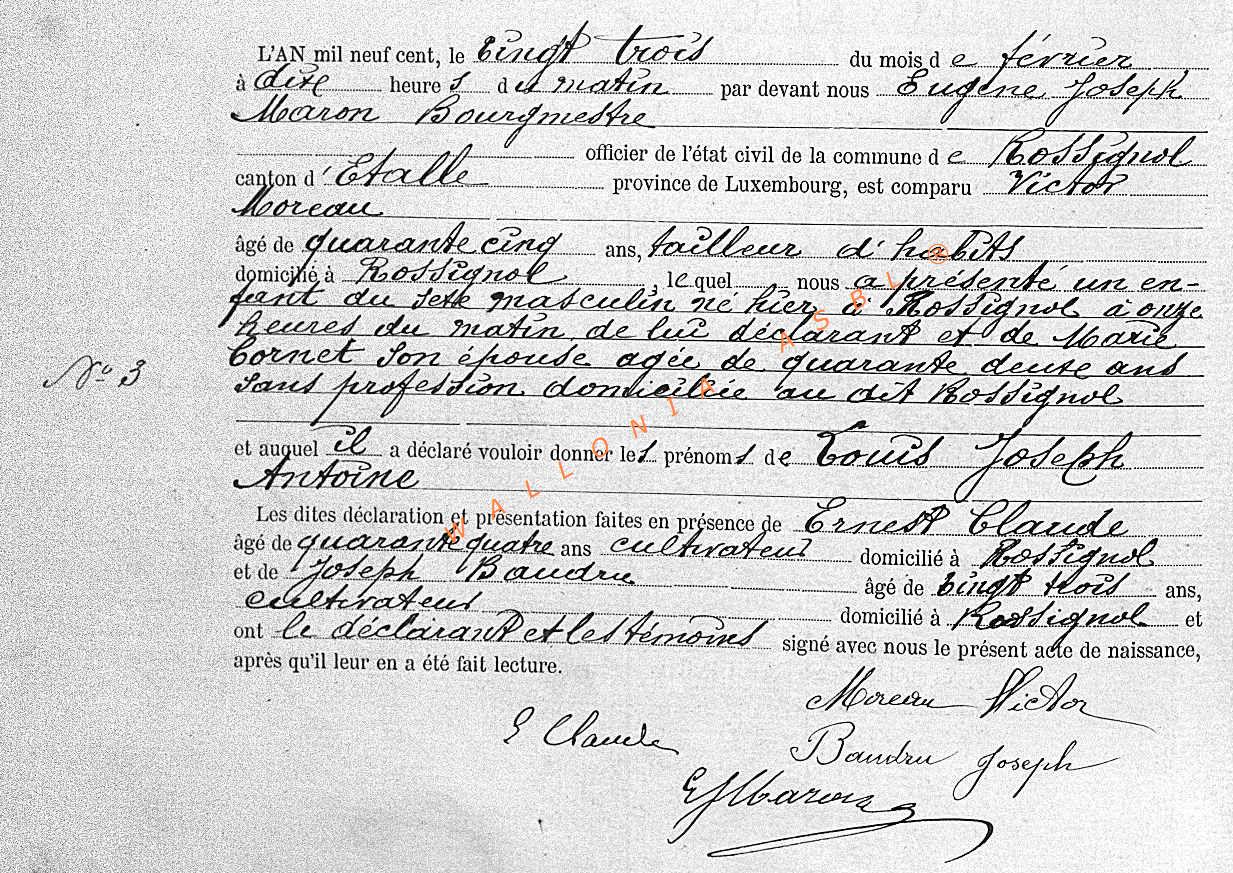 L'AN mil neuf cent, le vingt trois du mois d e février
à dix heure s d u matin par devant nous Eugène Joseph
Maron Bourgmestre
officier de l'état civil de la commune d e Rossignol
canton d' Etalle province de Luxembourg, est comparu Victor
Moreau
âgé de quarante cinq ans, tailleur d'habits
domicilié à Rossignol, le quel nous a présenté un en-
fant du sexe masculin né hier à Rossignol à onze
heures du matin de lui déclarant et de Marie
Cornet son épouse agée de quarante deux ans
N° 3
sans profession domiciliée au dit Rossignol
et auquel il a déclaré vouloir donner les prénoms de Louis Joseph
Antoine
Les dites déclaration et présentation faites en présence de Ernest Claude
âgé de quarante quatre ans cultivateur domicilié à Rossignol
et de Joseph Baudru âgé de vingt trois ans,
cultivateur domicilié à Rossignol et
ont le déclarant et les témoins signé avec nous le présent acte de naissance,
après qu'il leur en a été fait lecture.
Moreau Victor
E Claude
Baudru Joseph
EJMaron
WALLONIA ASBL ®